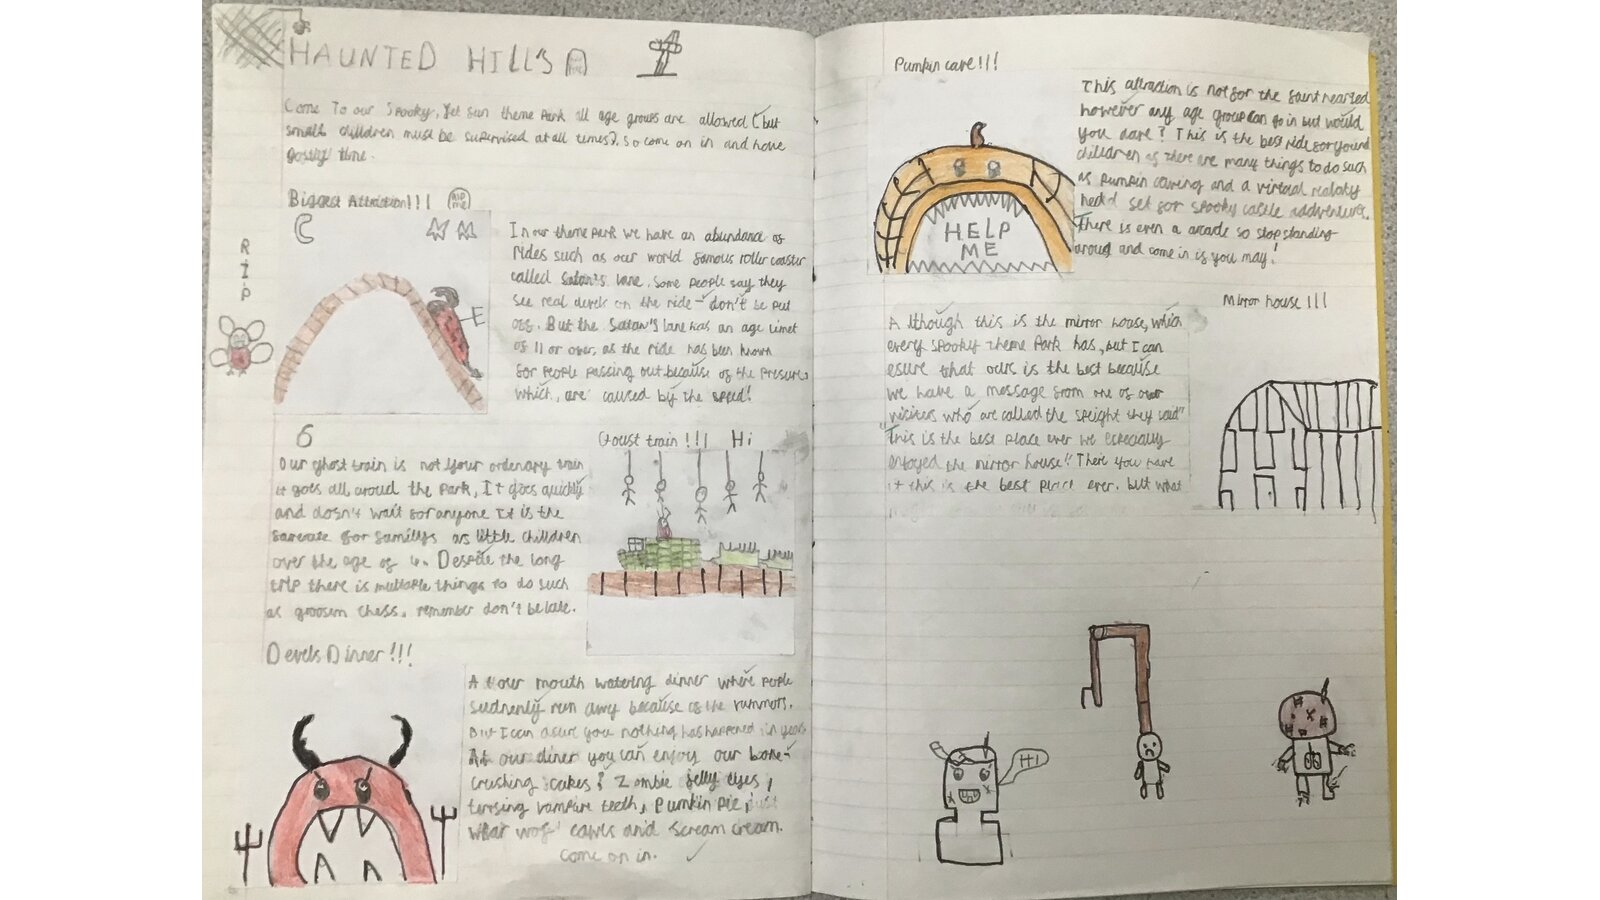 HAUNTED HILLS
Come To our Spooky, Yet sun theme Park all age groups are allowed (but
small chilldren must be supervised at all times). So come on in and have
gostly time.
Biggest Attraction!!!
RIP
ME
RIP
In our theme park we have an abundance of
rides such as our world samous roller coaster
called Satan's lane, some people say they
see real devels on the ride - don't be put
oss. But the Satan's lane has an age limet
of 11 or over, as the ride has been known
for people passing out because of the presure
which, are caused by the speed!
E
6
Goust train !!! Hi
Our ghost train is not your ordenary train
it goes all around the park, It goes quickly
and dosn't wait for anyone It is the
for familys as little children
over the age of 4. Despite the long
trip there is multiple things to do such
as chess, remember don't be late.
Devels Dinner!!!
At our mouth watering dinner where people
sudnenly run away because of the rumors.
But I can asure you nothing has happened in years
At our diner you can enjoy our bone-
crushing cakes, Zombie jelly eyes,
vampire teeth, Pumkin pie, just
what and scream cream.
come on in.
Pumkin cave!!!
This attraction is not for the faint hearted
however any age group can go in but would
you dare? This is the best ride for yound
chilldren as there are many things to do such
as pumkin caving and a virtual realaty
head set for spooky castle addventures.
There is even a arcade so stop standing
aroud and come in is you may!
HELP
ME
Mirror house !!!
Although this is the mirror house, which
every spooky theme park has, but I can
esure that ours is the best because
we have a message from one of our
visiters who are called the speight they said"
"This is the best place ever we ececially
enjoyed the mirror house!" There you have
it this is the best place ever. but what
Hi